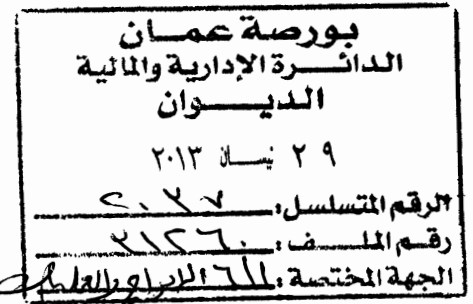 بورصة عمان
الدائرة الإدارية والمالية
الديوان
٢٩ نيسان ٢٠١٣
الرقم المتسلسل: ٢٠٣٧
رقم الملف: ٣١٢٦٠
الجهة المختصة: الإدراج والعمليات